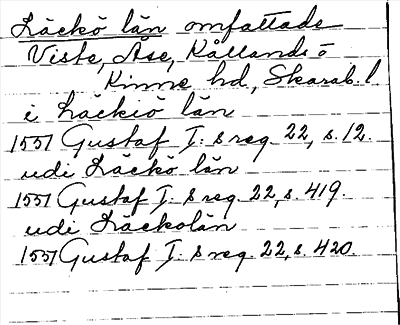 Läckö län omfattade
Viste, Åse, Kållands o
Kinne hd, Skarab. l.
i Läckiö län
1551 Gustaf I:s reg. 22, s. 12.
udi Läckö län
1551 Gustaf I:s reg. 22, s. 419.
udi Läckolän
1551 Gustaf I:s reg. 22, s. 420.